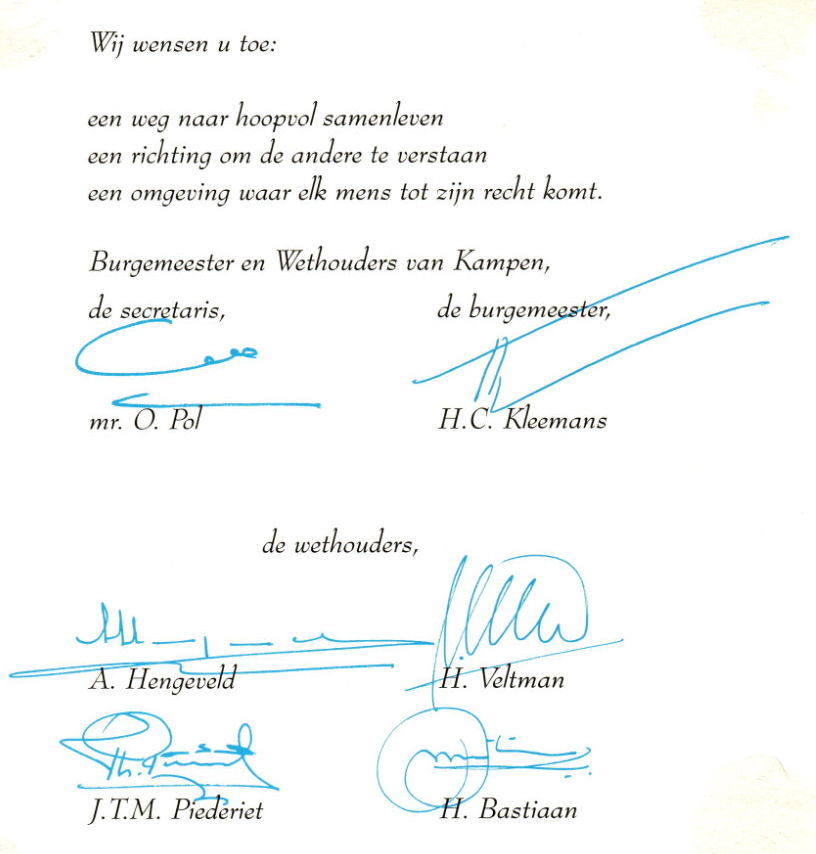 Wij wensen u toe:
een weg naar hoopvol samenleven
een richting om de andere te verstaan
een omgeving waar elk mens tot zijn recht komt.
Burgemeester en Wethouders van Kampen,
de secretaris, de burgemeester,
mr. O. Pol H.C. Kleemans
de wethouders,
A. Hengeveld H. Veltman
J.T.M. Piederiet H. Bastiaan